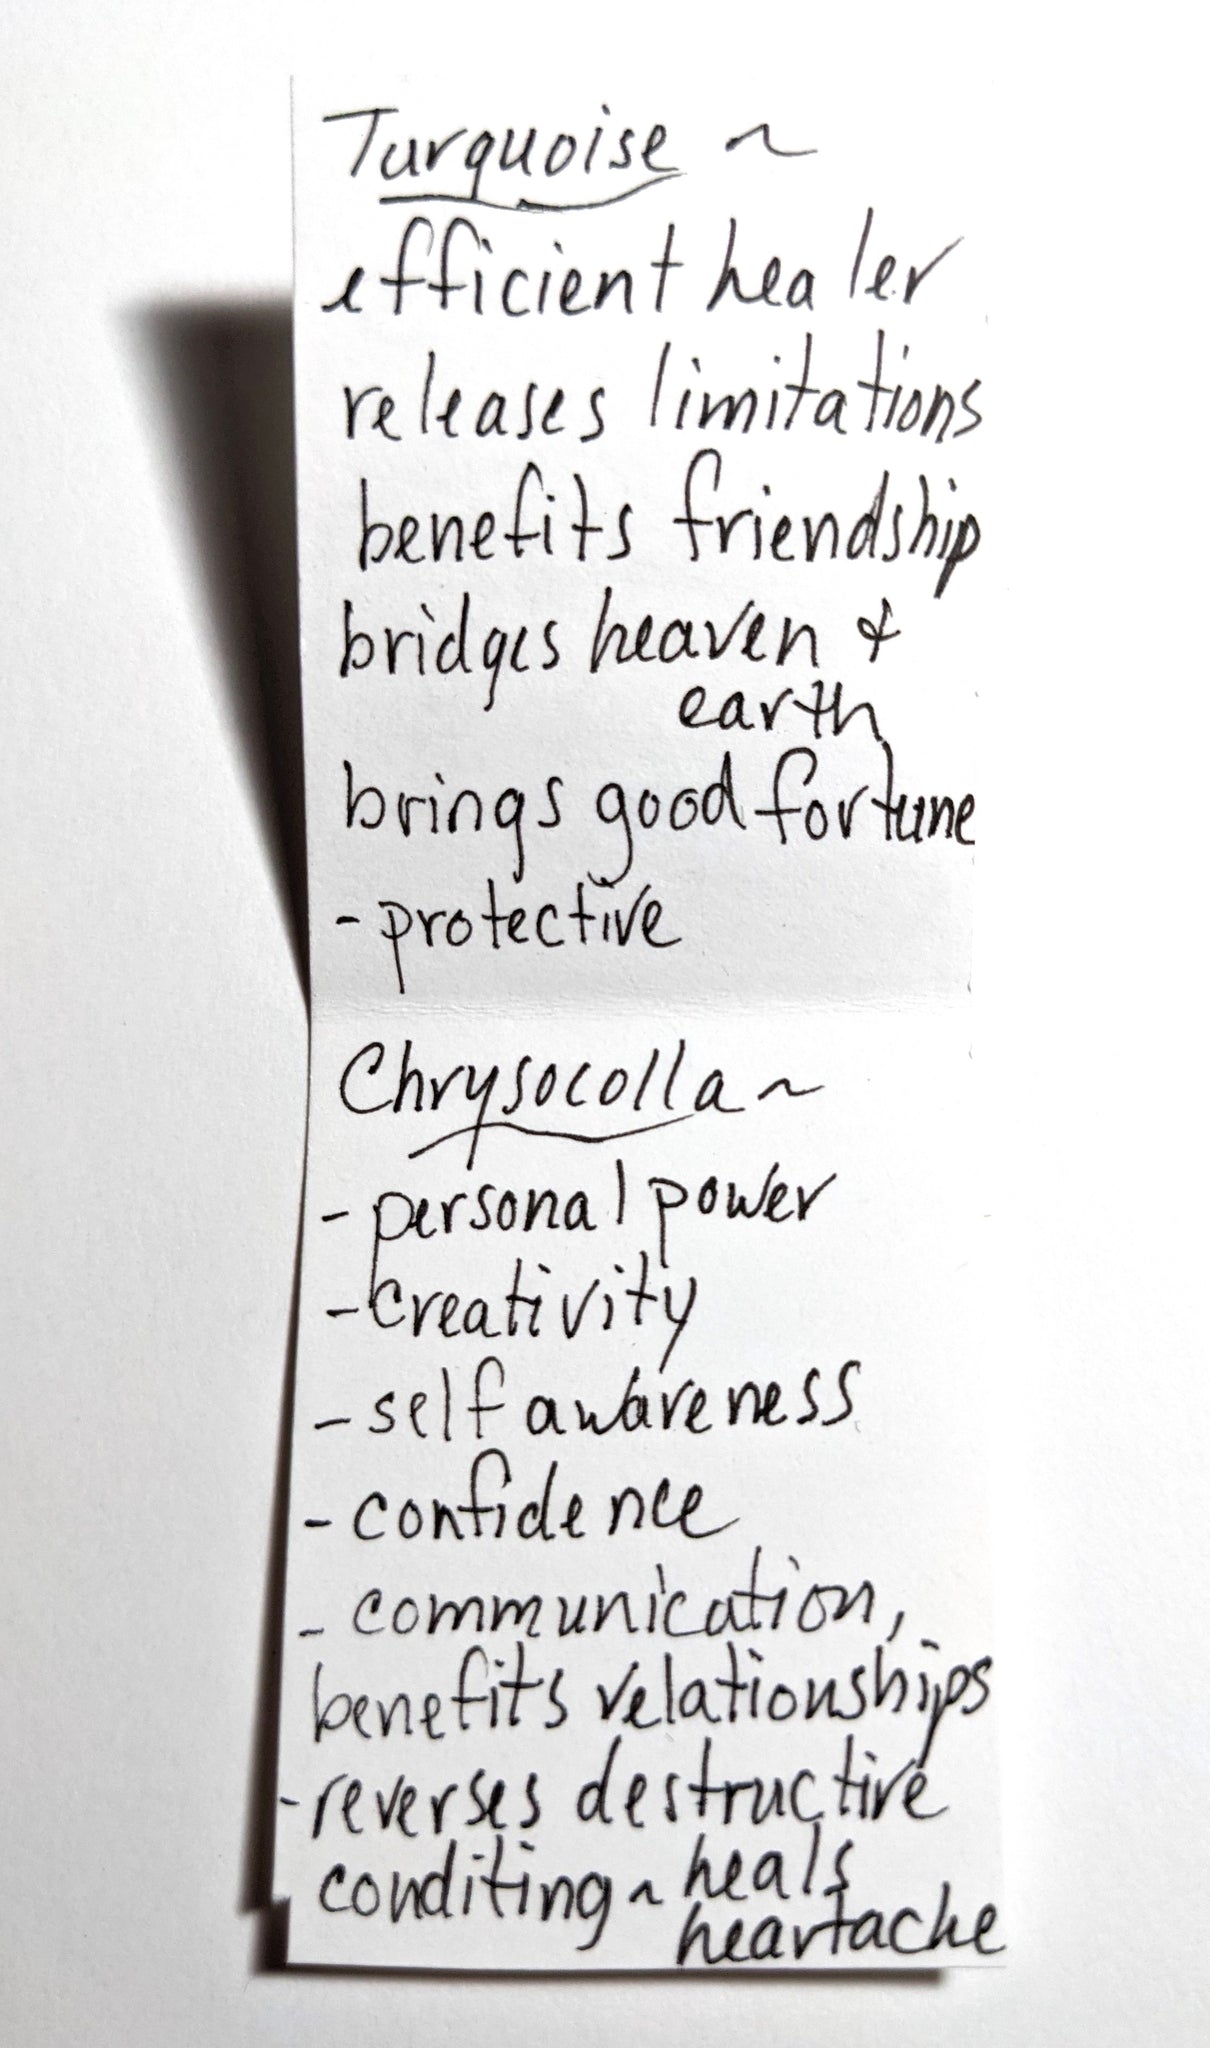 Turquoise ~
efficient healer
releases limitations
benefits friendship
bridges heaven &
earth
brings good fortune
- protective
Chrysocolla ~
- personal power
- creativity
- self awareness
- confidence
- communication,
benefits relationships
- reverses destructive
conditing ~ heals
heartache